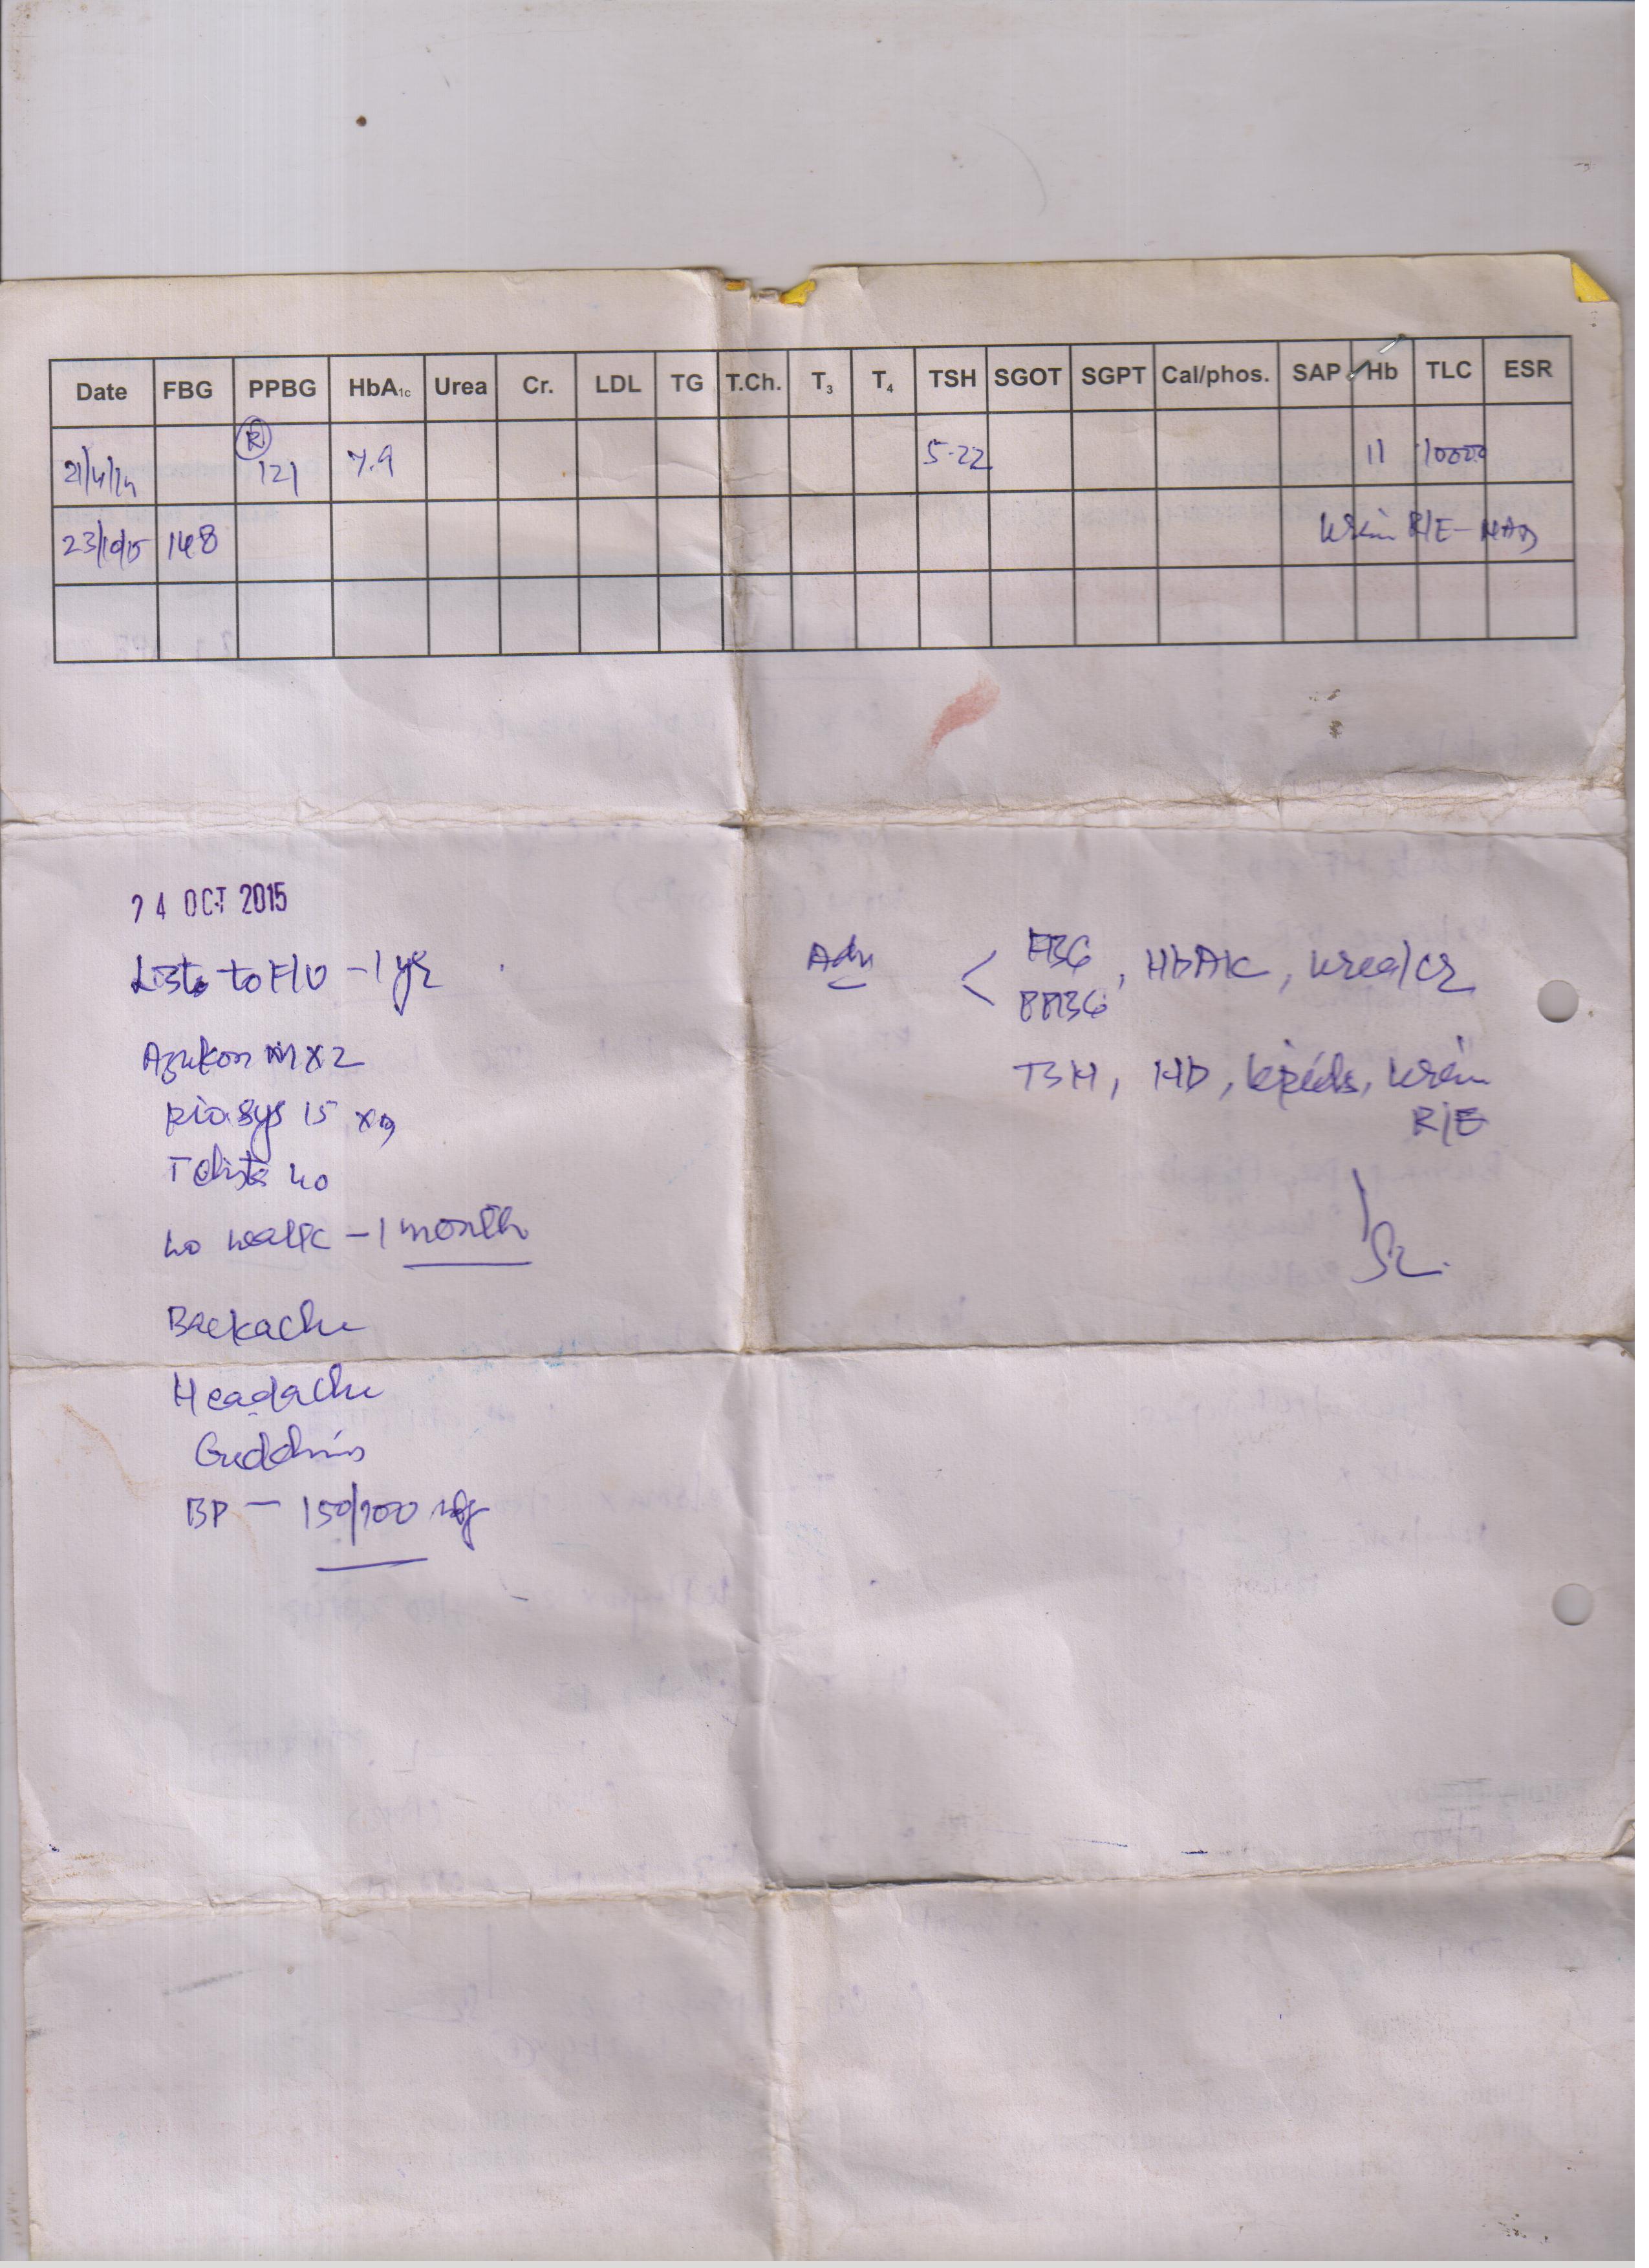 Date FBG PPBG HbA1c Urea Cr. LDL TG T.Ch. T3 T4 TSH SGOT SGPT Cal/phos. SAP Hb TLC ESR
21/4/14 R 121 7.9 5.22 11 10000
23/10/15 148 Urine R/E - NAD
24 OCT 2015
Lost to F/U - 1 yr
Azukon M x 2
15
Telista 40
no walk - 1 month
Backache
Headache
Giddiness
BP - 150/100
Adv
FBG
PPBG , HbA1c, Urea/Cr
TSH, Hb, Lipids, Urine
R/E